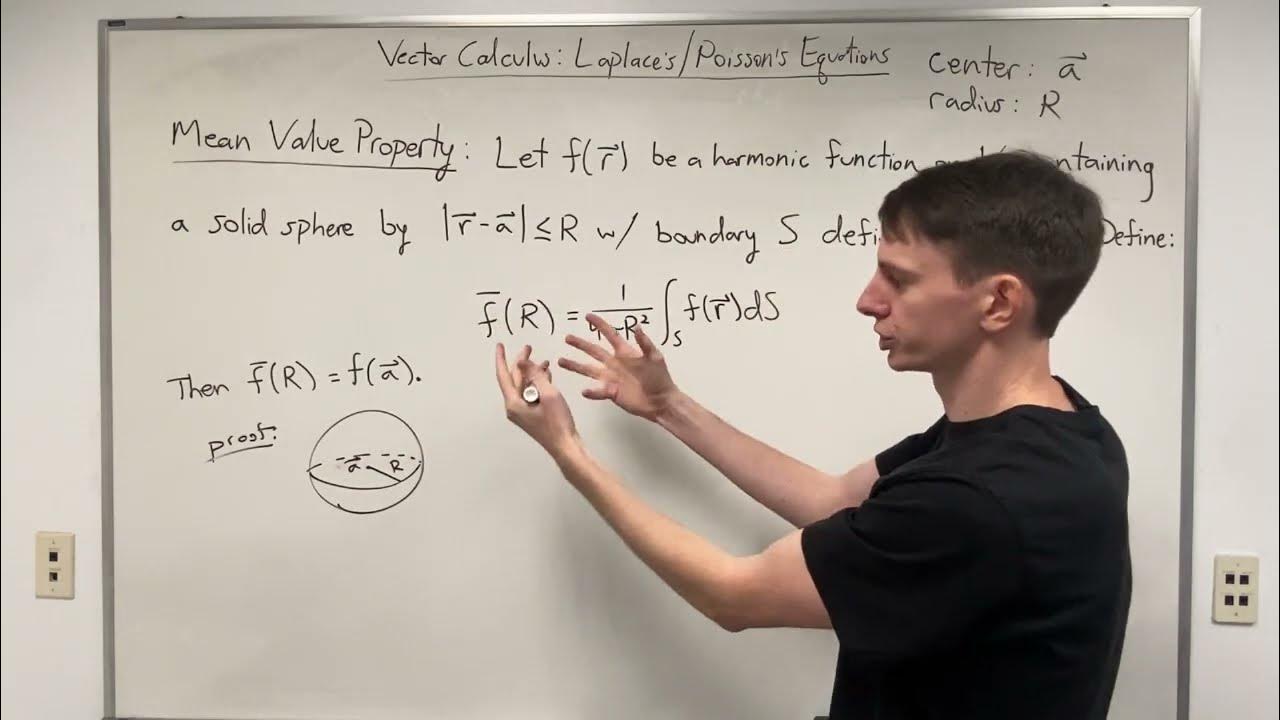 Vector Calculus: Laplace's/Poisson's Equations
center: a⃗
radius: R
Mean Value Property: Let f(r⃗) be a harmonic function
a solid sphere by |r⃗-a⃗|≤R w/ boundary S Define:
f̄(R) = 1/R² ∫_S f(r⃗)dS
Then f̄(R) = f(a⃗).
proof:
a⃗ R